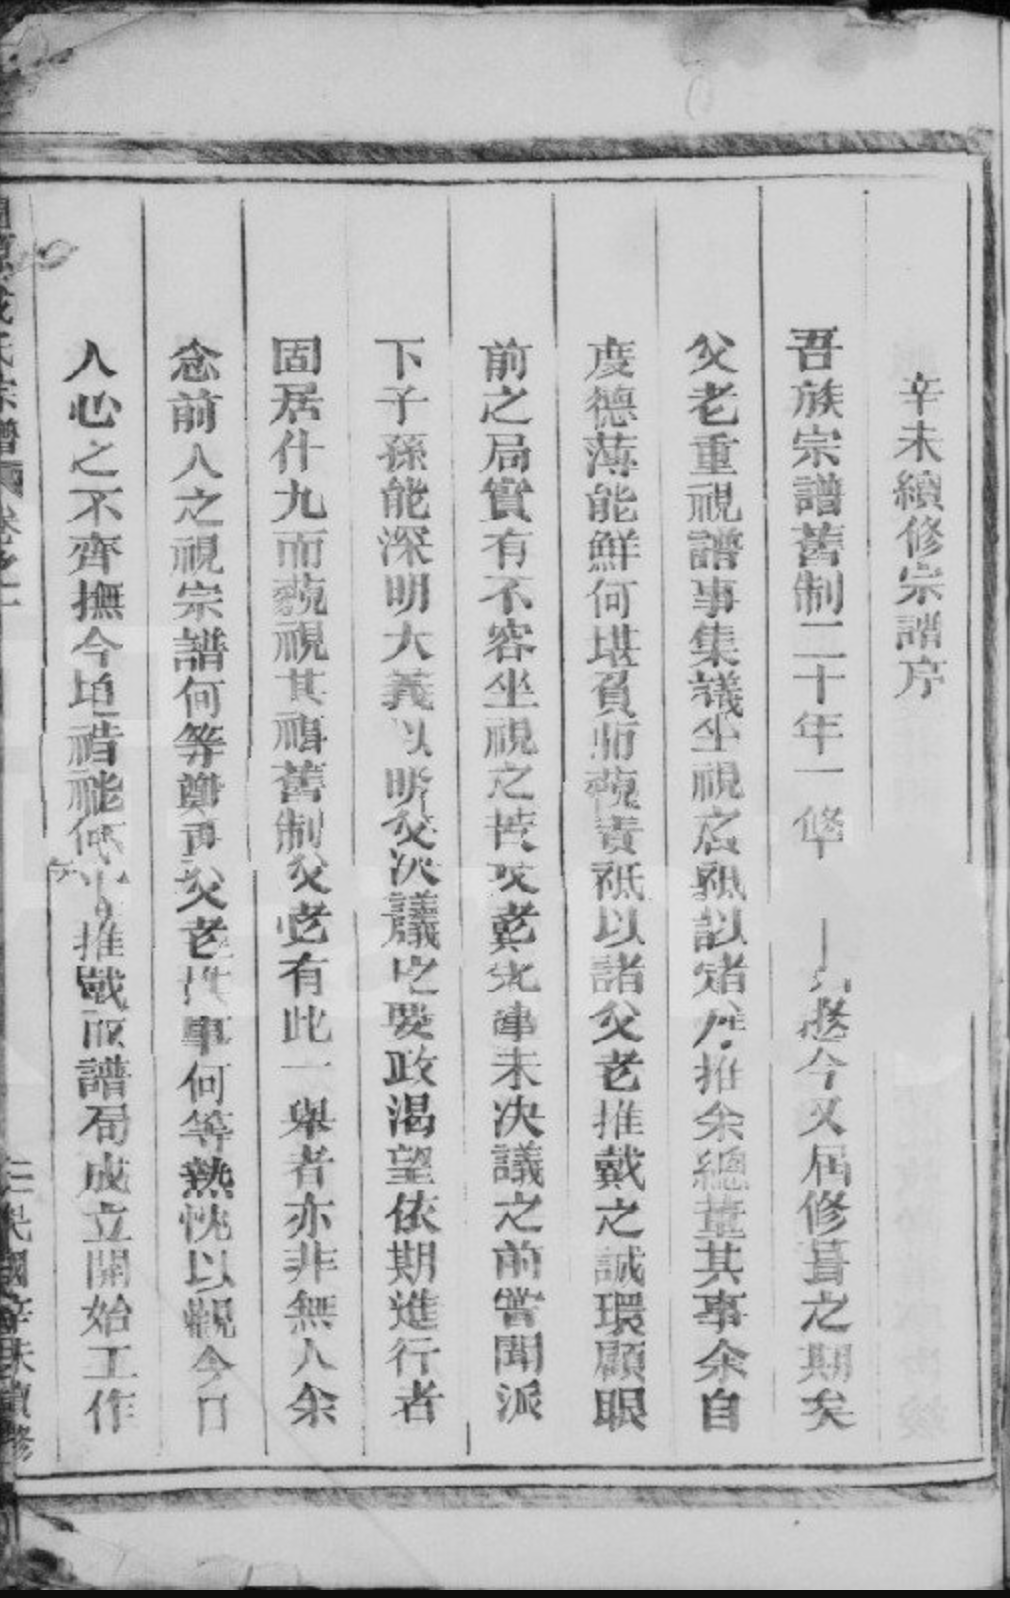 辛未續修宗譜序
吾族宗譜舊制二十年一修今又屆修葺之期矣
父老重視譜事集議坐視以諸推余總董其事余自
度德薄能鮮何堪負而藐責祗以諸父老推戴之誠環顧眼
前之局實有不容坐視之苦老未決議之前嘗聞派
下子孫能深明大義以決議政渴望依期進行者
固居什九而藐視其舊制父老有此一舉者亦非無人余
念前人之視宗譜何等鄭重父老事何等熱忱以觀今日
人心之不齊撫今推戴譜局成立開始工作
氏宗譜 卷之
民國辛未續修